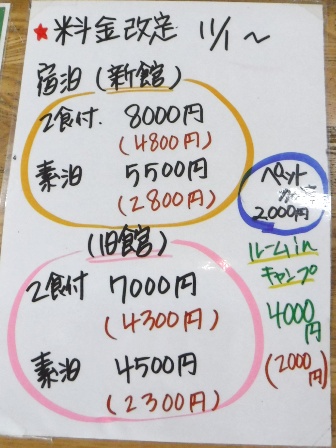 ★料金改定 11/1〜
宿泊(新館)
2食付. 8000円
(4800円)
素泊 5500円
(2800円)
ペット
2,000円
(旧館)
2食付 7000円
(4300円)
素泊 4500円
(2300円)
ルームin
キャンプ
4000円
(2000円)